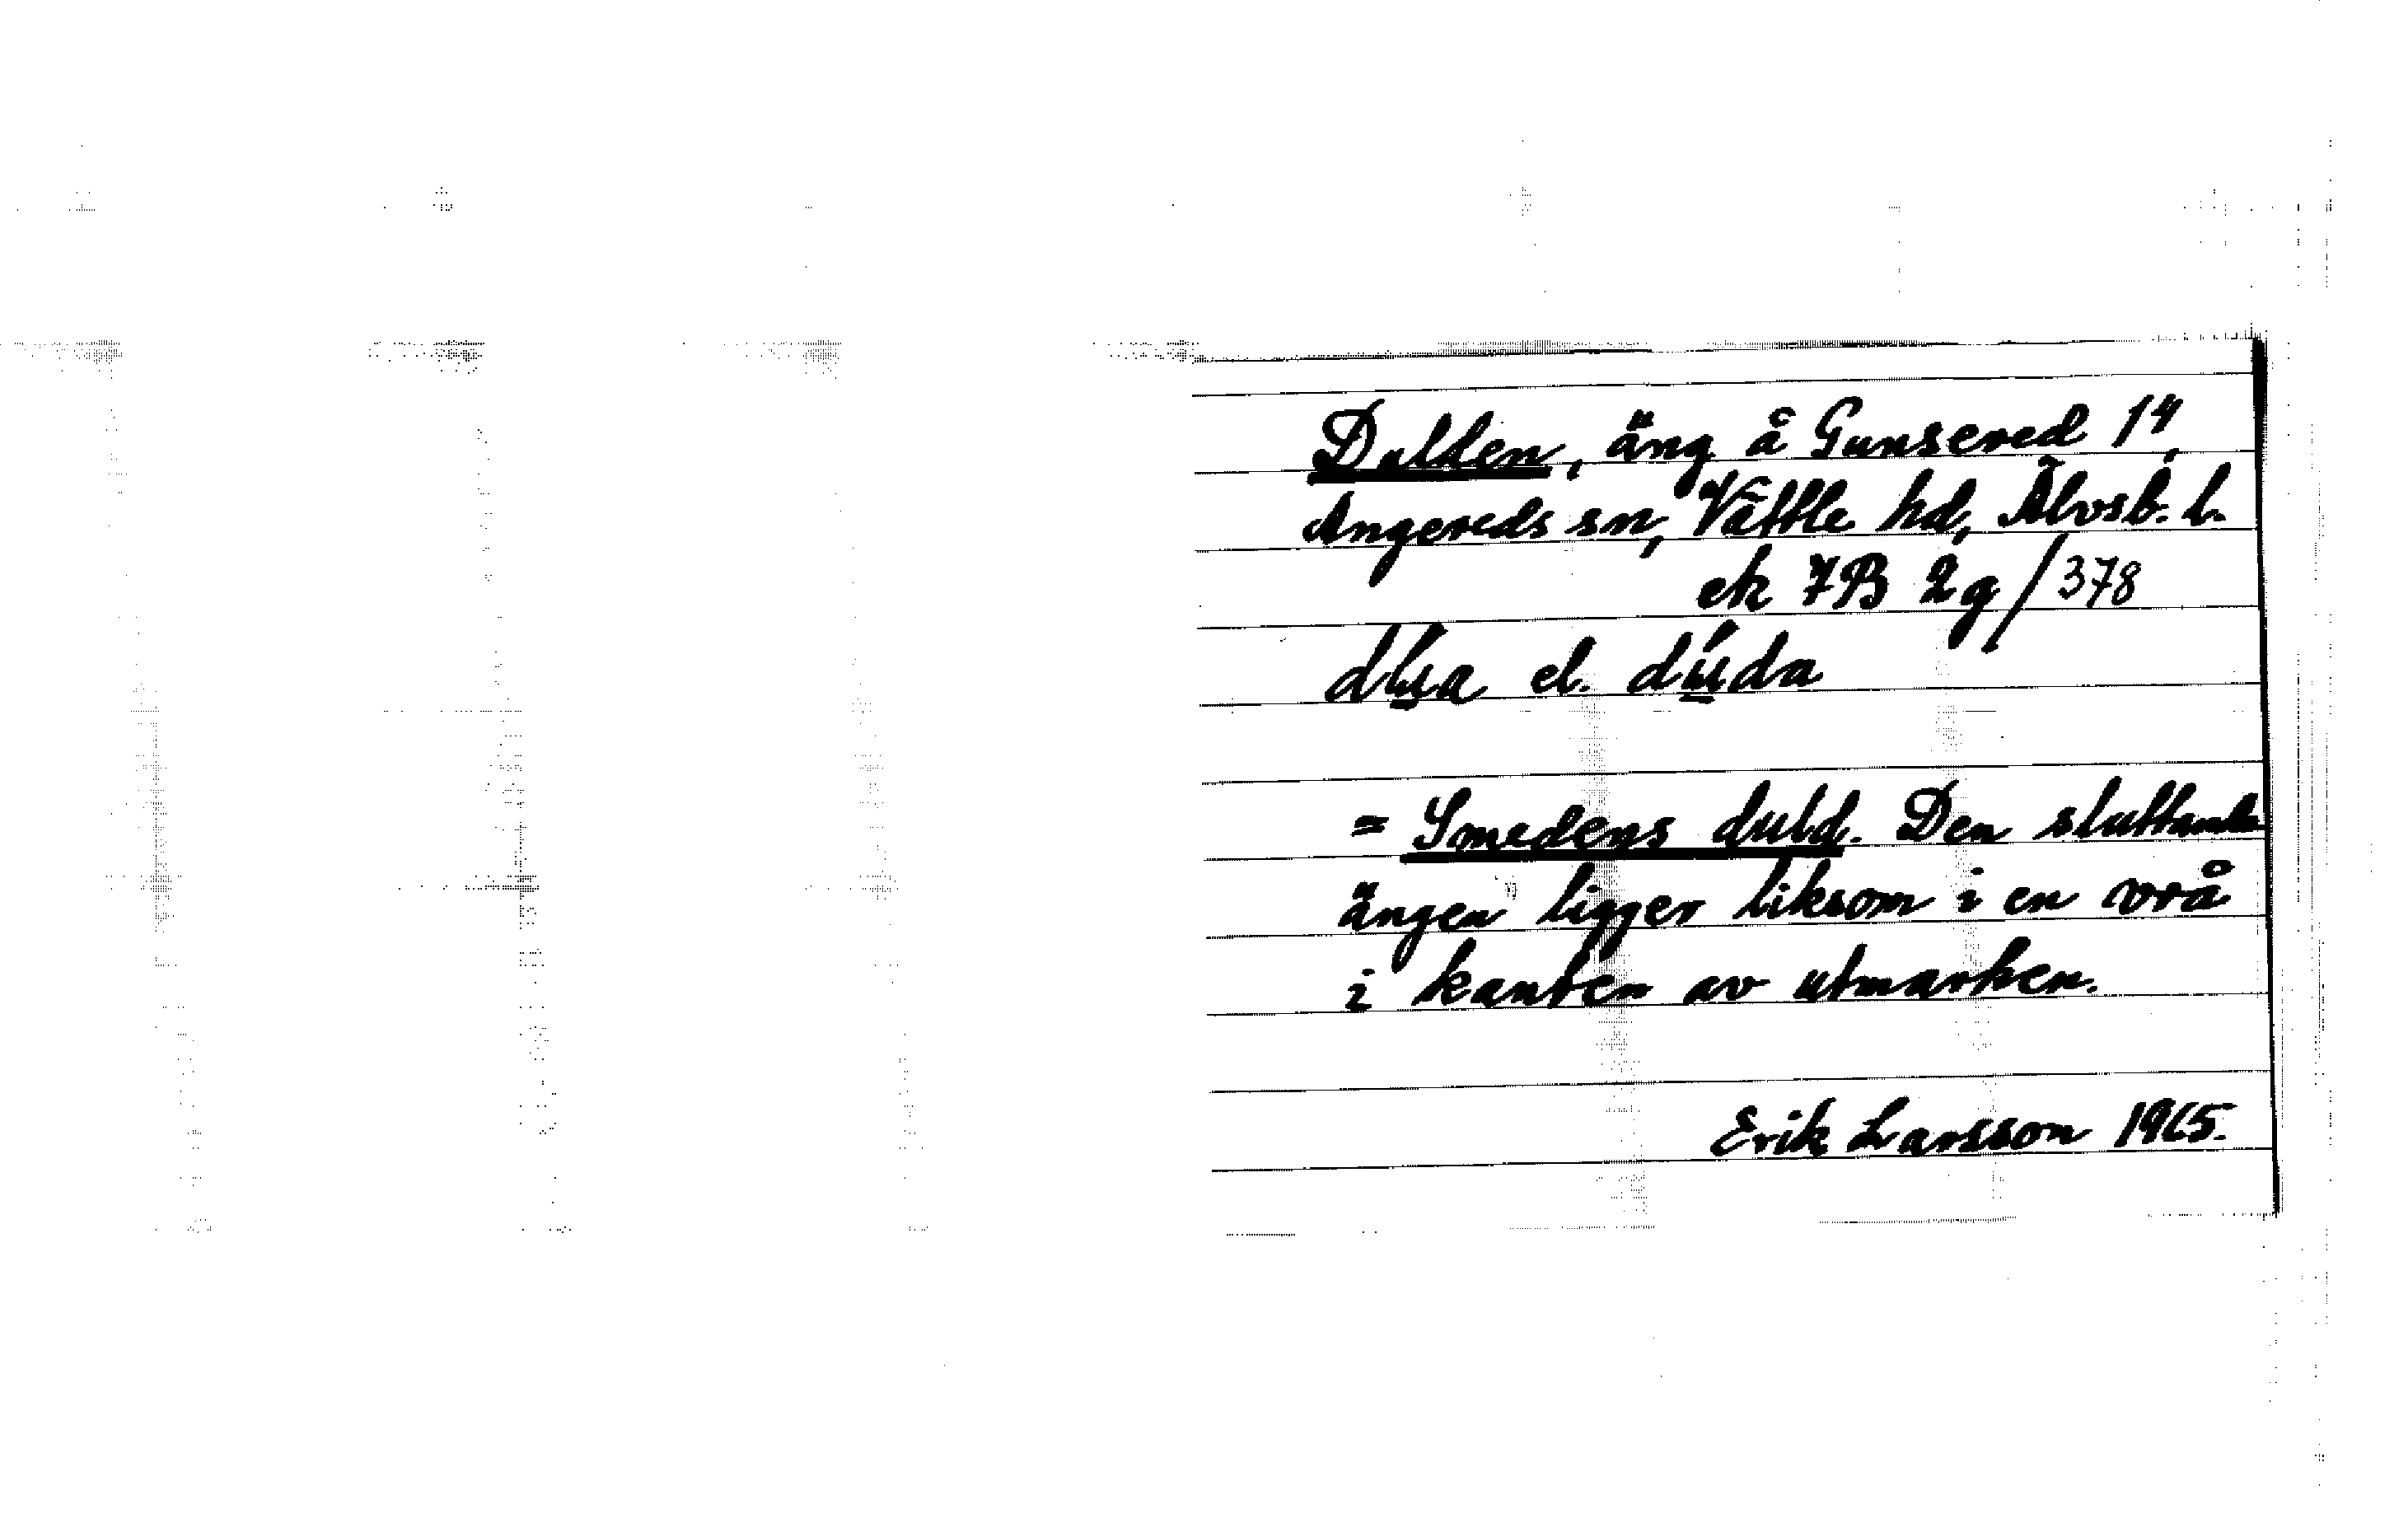 Dulden, äng å Gunsered 14,
Angereds sn, Vättle hd, Älvsb. l.
ek 7B 2g/378
el. dúda
= Smedens duld. Den sluttande
ängen ligger liksom i en vrå
i kanten av utmarken.
Erik Larsson 1965.